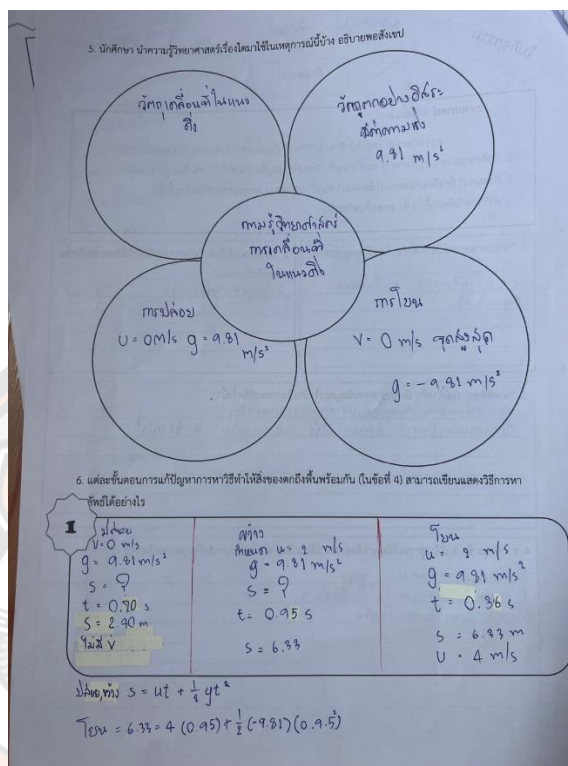 5. นักศึกษา นำความรู้วิทยาศาสตร์เรื่องใดมาใช้ในเหตุการณ์นี้บ้าง อธิบายพอสังเขป
วัตถุเคลื่อนที่ในแนว
ดิ่ง
วัตถุตกอย่างอิสระ
มีค่าความเร่ง
9.81 m/s²
ความรู้วิทยาศาสตร์
การเคลื่อนที่
ในแนวดิ่ง
การปล่อย
u = 0 m/s g = 9.81
m/s²
การโยน
v = 0 m/s จุดสูงสุด
g = -9.81 m/s²
6. แต่ละขั้นตอนการแก้ปัญหาการหาวิธีทำให้สิ่งของตกถึงพื้นพร้อมกัน (ในข้อที่ 4) สามารถเขียนแสดงวิธีการหา
ลัพธ์ได้อย่างไร
1
ปล่อย
v = 0 m/s
g = 9.81 m/s²
s = ?
t = 0.70 s
s = 2.40 m
ไม่มี v
ขว้าง
กำหนด u = 2 m/s
g = 9.81 m/s²
s = ?
t = 0.95 s
s = 6.33
โยน
u = ? m/s
g = 9.81 m/s²
t = 0.36 s
s = 6.33 m
u = 4 m/s
ปล่อย, ขว้าง s = ut + ½ gt²
โยน = 6.33 = 4 (0.95) + ½ (-9.81) (0.95²)